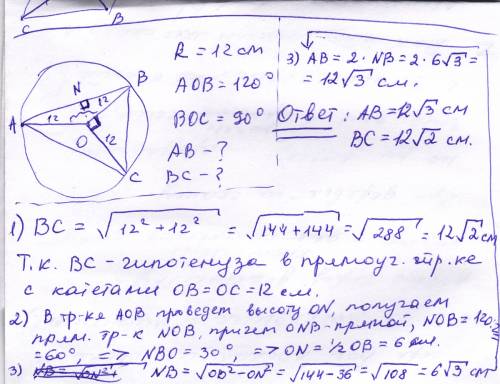 C
B
R = 12 см
AOB = 120°
BOC = 90°
AB - ?
BC - ?
N
B
12
12
A
O
12
C
3) AB = 2 · NB = 2 · 6√3 =
= 12√3 см.
Ответ: AB = 12√3 см
BC = 12√2 см.
1) BC = √12² + 12² = √144 + 144 = √288 = 12√2 см
Т.к. BC - гипотенуза в прямоуг. тр. ке
с катетами OB = OC = 12 см.
2) В тр-ке AOB проведем высоту ON, получаем
прям. тр-к NOB, причем ONB - прямой, NOB = 120:2
= 60°, => NBO = 30°, => ON = 1/2 OB = 6 см.
3) NB = √OB² - ON² = √144 - 36 = √108 = 6√3 см